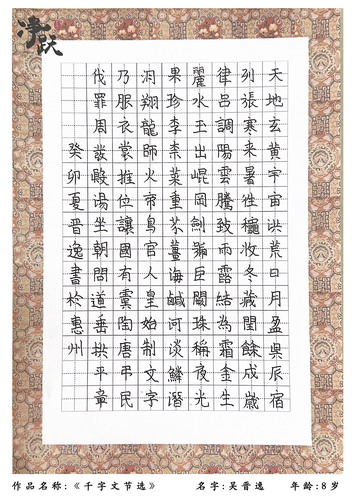 天地玄黃宇宙洪荒日月盈昃辰宿
列張寒來暑往穐收冬藏閏餘成歲
律呂調陽雲騰致雨露結為霜金生
麗水玉出崐岡劍號巨闕珠稱夜光
果珍李柰菜重芥薑海鹹河淡鱗潛
羽翔龍師火帝鳥官人皇始制文字
乃服衣裳推位讓國有虞陶唐弔民
伐罪周發殷湯坐朝問道垂拱平章
癸卯夏晉逸書於惠州
作品名称:《千字文节选》 名字:吴晋逸 年龄:8岁